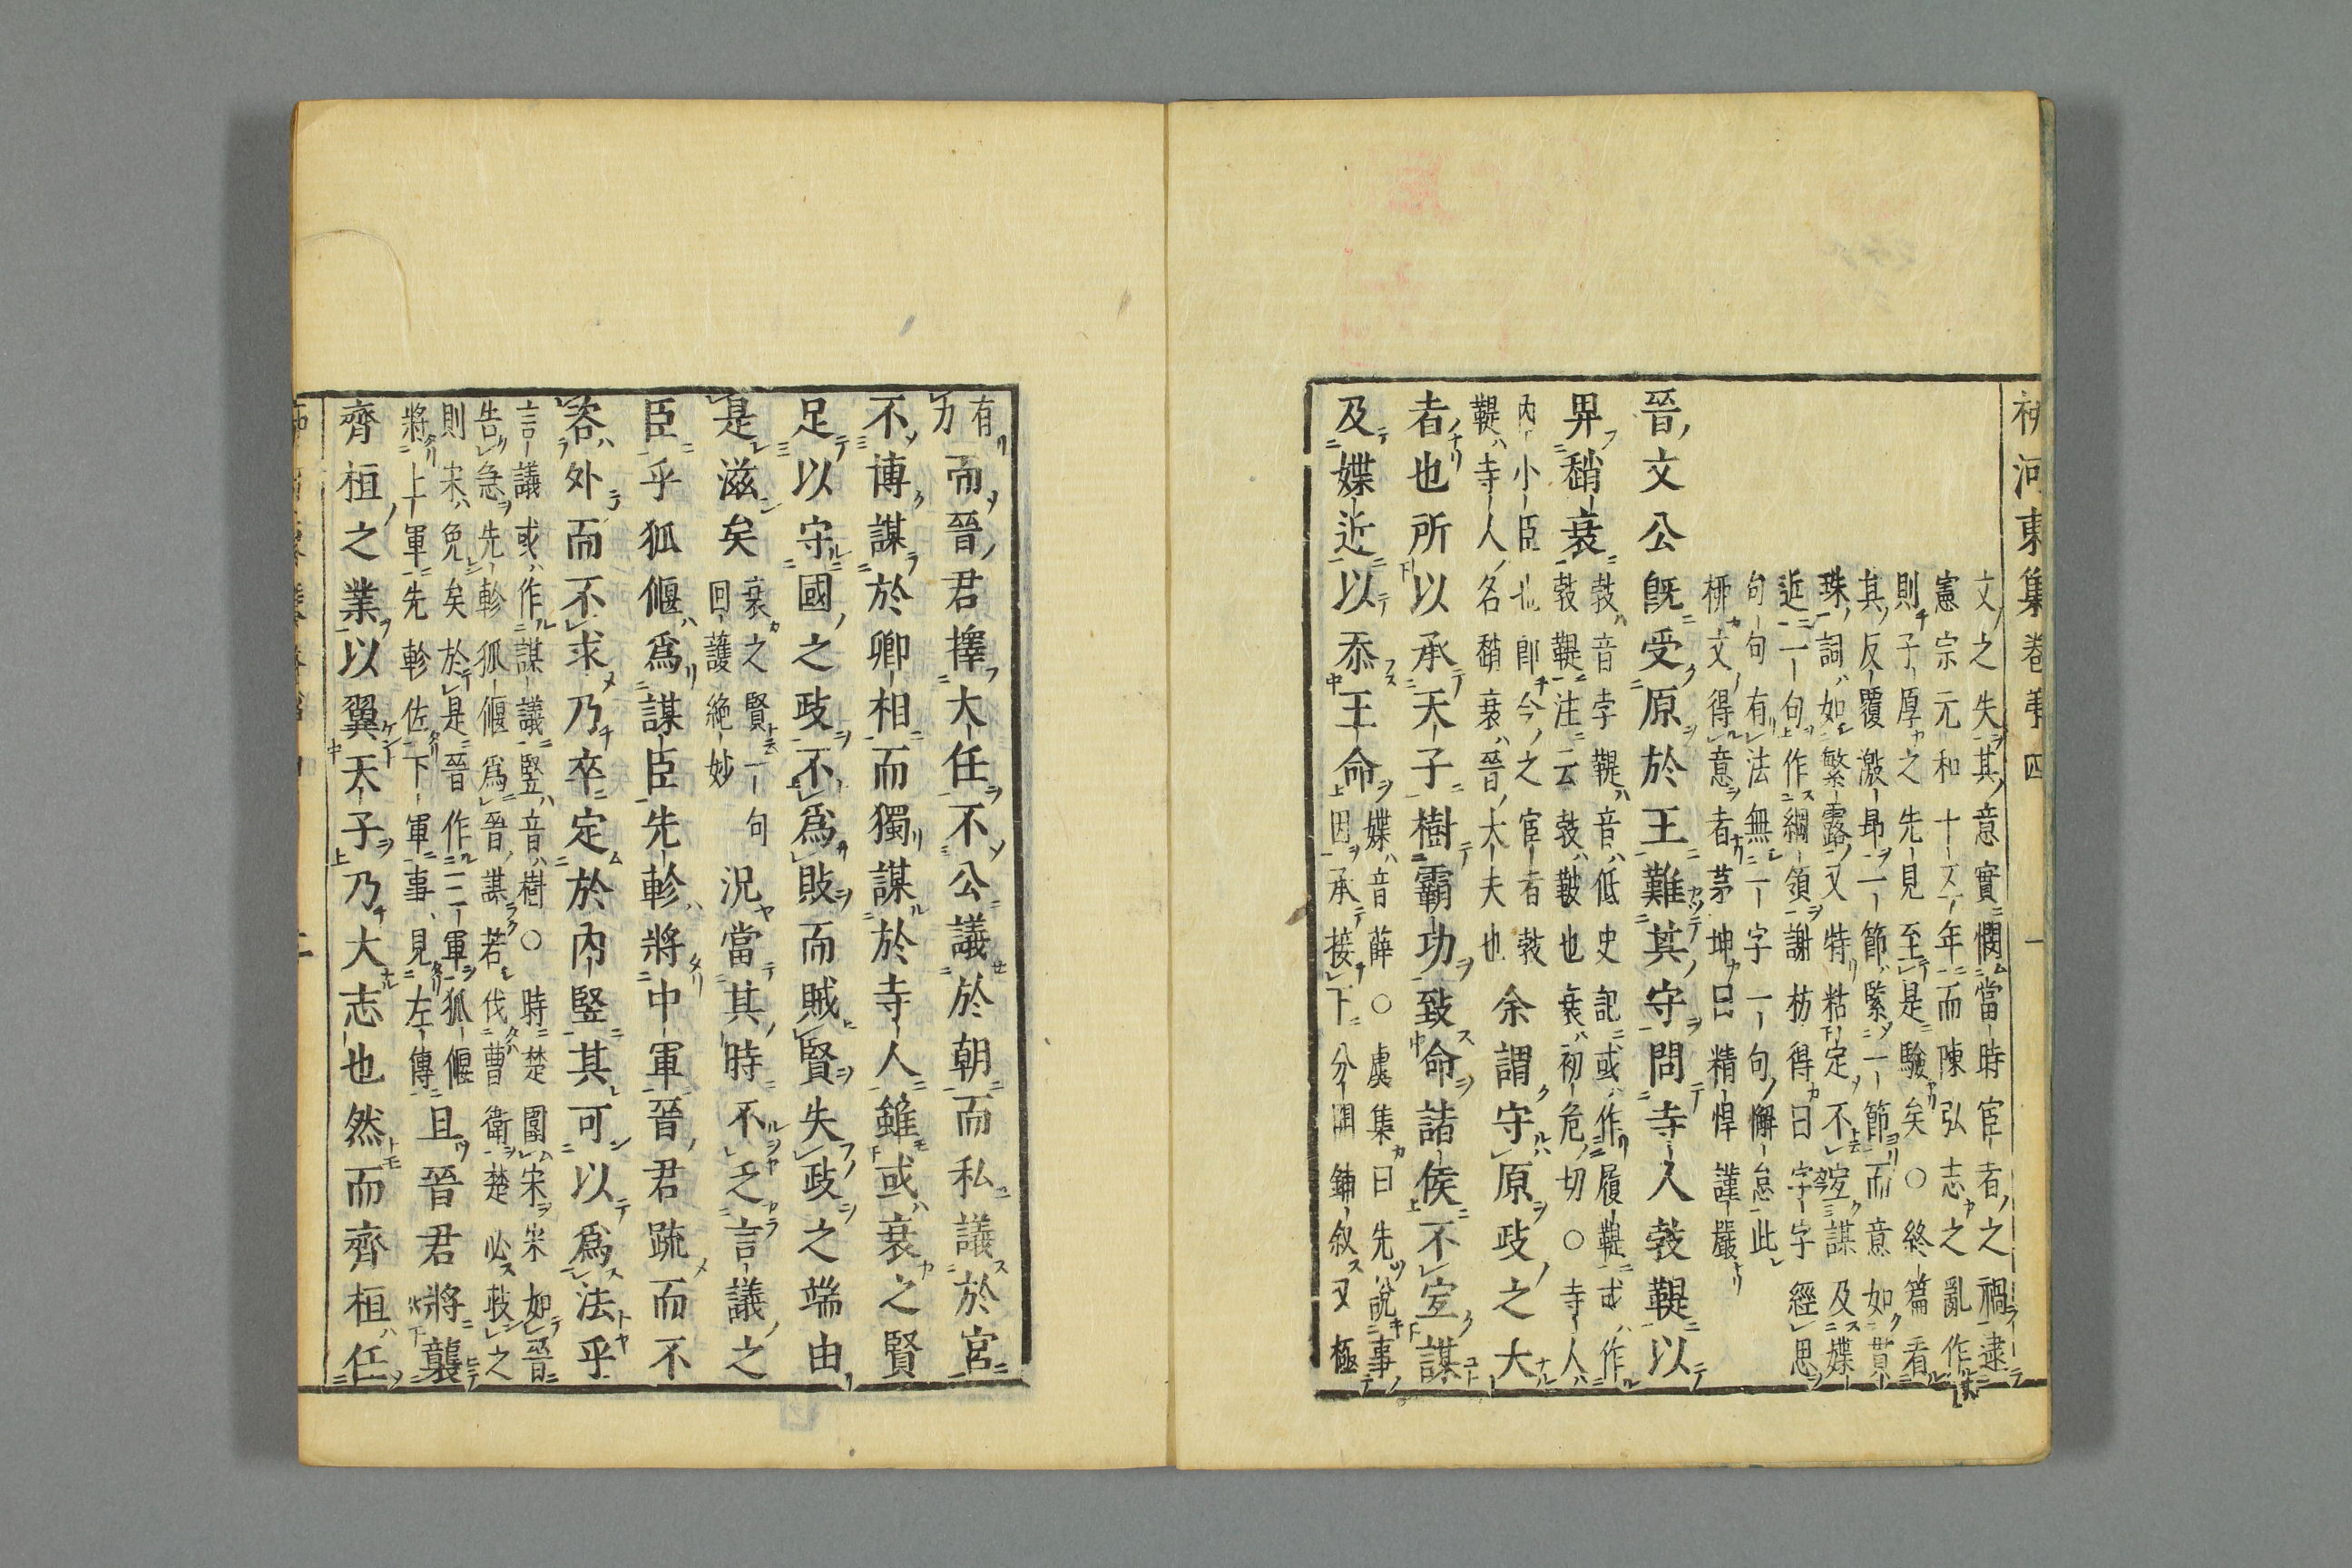 柳河東集卷第四 一
文之失其意實憫當時宦者之禍逮
憲宗元和十五年而陳弘志之亂作
則子厚之先見至是驗矣○終篇看
其反覆激昂一節緊一節而意如貫
珠詞如繁露又特粘定不宜謀及媟
近一句作綱領謝枋得曰字字經思
句句有法無一字一句懈怠此
柳文得意者茅坤曰精悍謹嚴
晉文公旣受原於王難其守問寺人㪍鞮以
畀趙衰
㪍音孛鞮音低史記或作履鞮或作
㪍鞮注云㪍鞁也衰初危切○寺人
內小臣 卽今之宦者㪍
鞮寺人名趙衰晉大夫也
余謂守原政之大
者也所以承天子樹霸功致命諸侯不宜謀
及媟近以忝王命
媟音薛○虞集曰先說事
因承接下分開鋪叙又極
有
力
而晉君擇大任不公議於朝而私議於宮
不博謀於卿相而獨謀於寺人雖或衰之賢
足以守國之政不爲敗而賊賢失政之端由
是滋矣
衰之賢一句
回護絶妙
況當其時不乏言議之
臣乎狐偃爲謀臣先軫將中軍晉君疏而不
咨外而不求乃卒定於內竪其可以爲法乎
言議或作謀議竪音樹○時楚圍宋宋如晉
告急先軫狐偃爲晉謀若伐曹衛楚必救之
則宋免矣於是晉作三軍狐偃
將上軍先軫佐下軍事見左傳
且晉君將襲
齊桓之業以翼天子乃大志也然而齊桓任